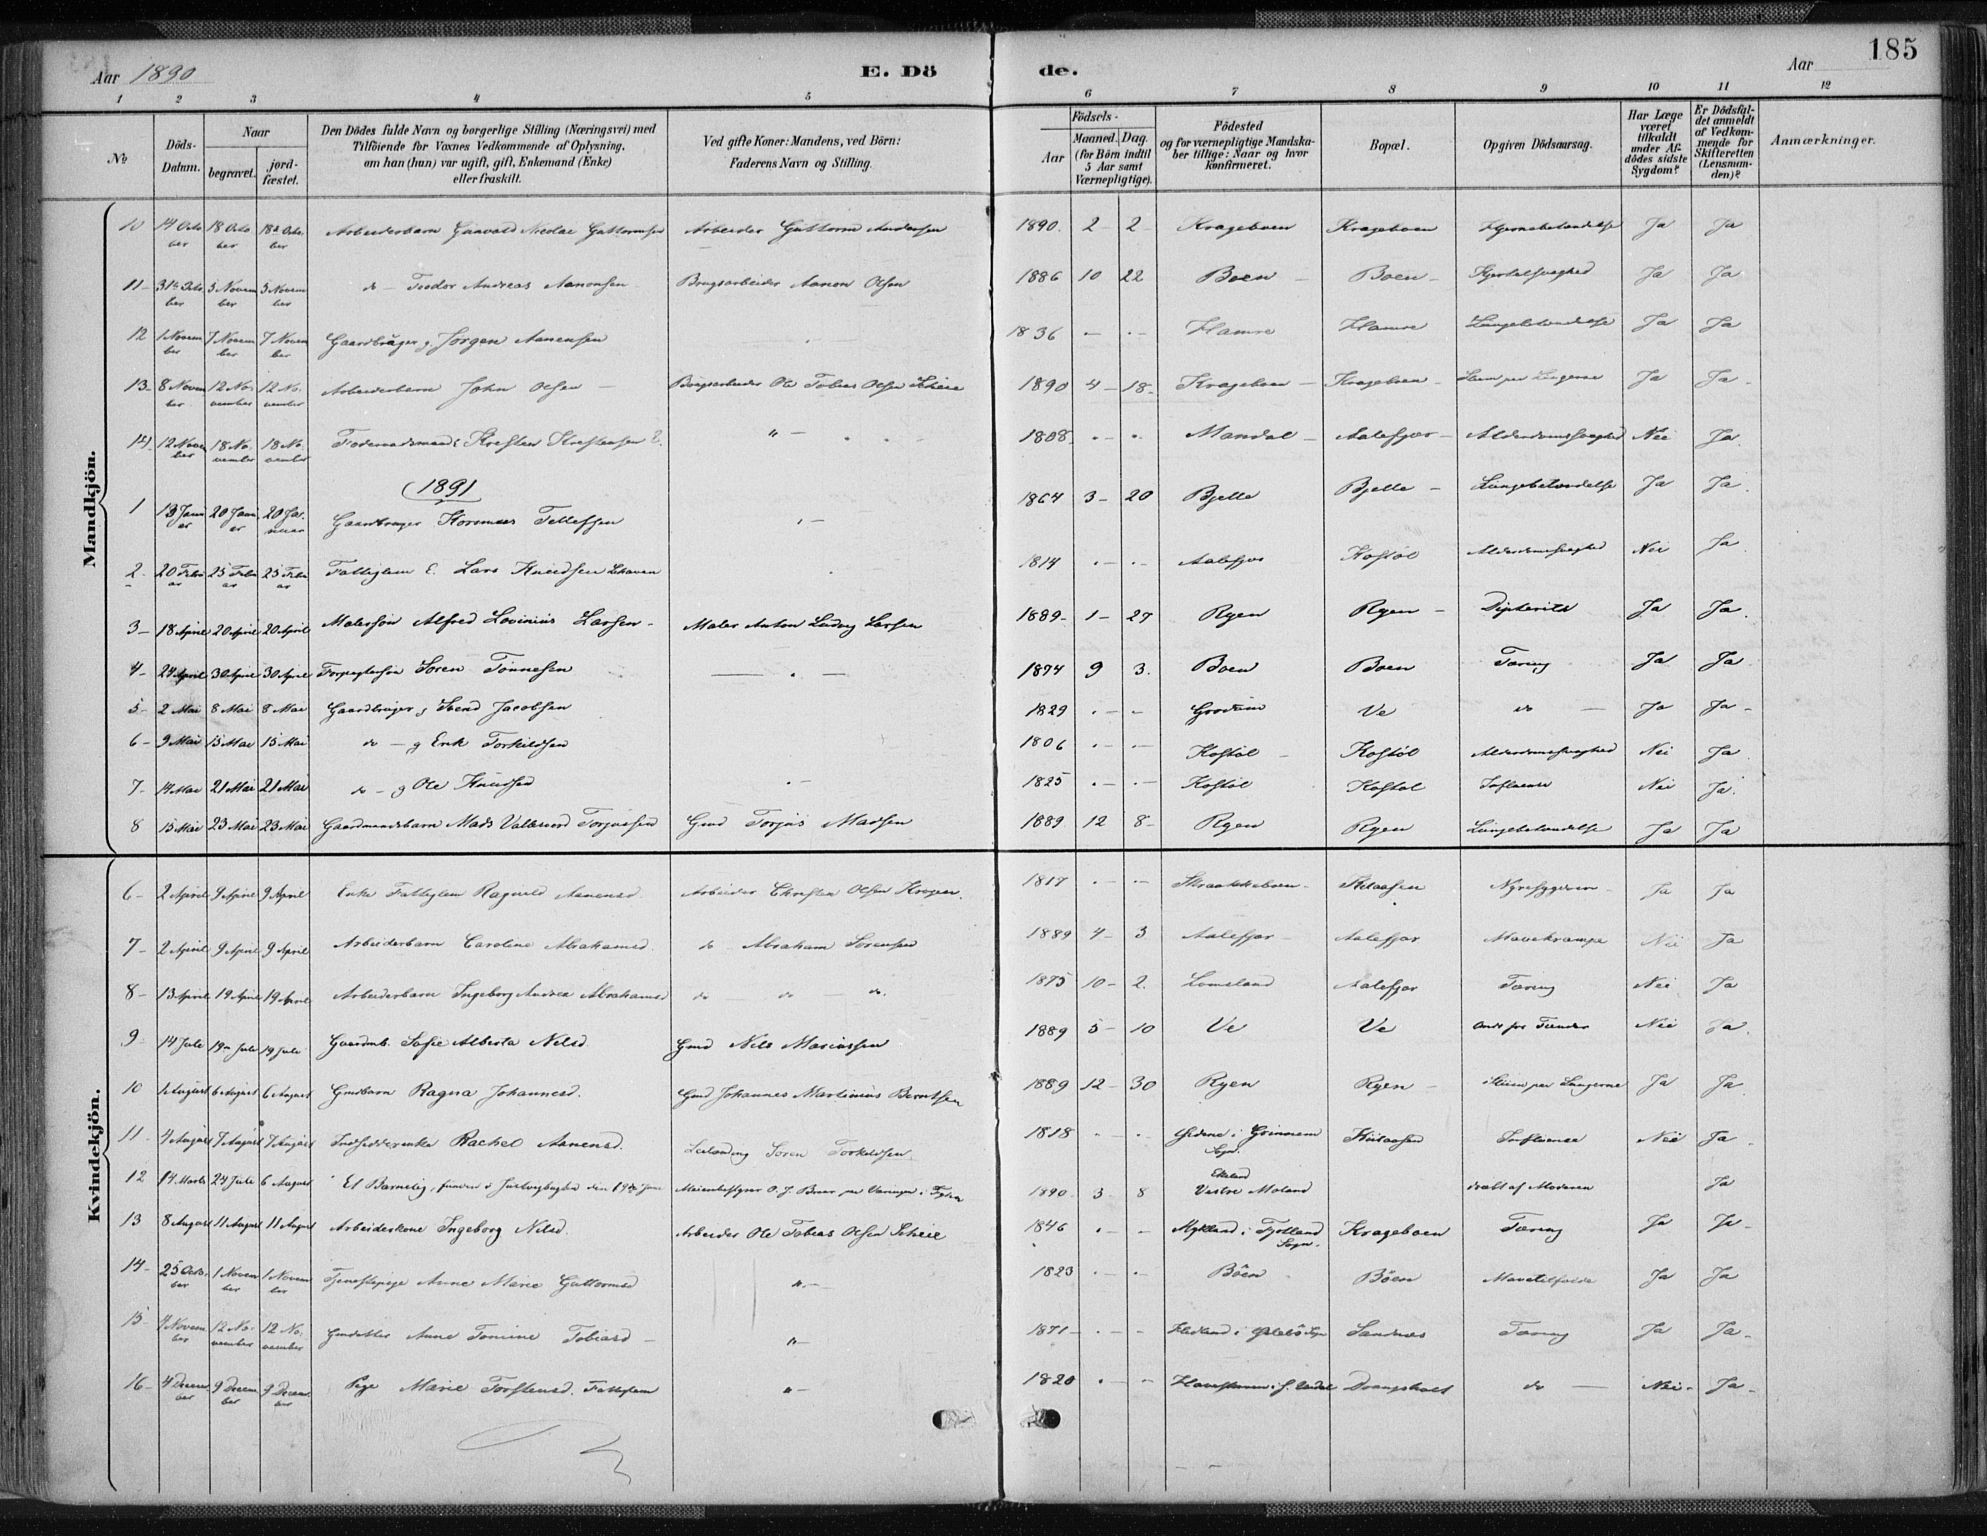 185
Aar 1890
E. Dö
de.
Aar
1 2 3 4 5 6 7 8 9 10 11 12
No
Döds-Datum.
Naar
begravet.
jordfæstet.
Den Dödes fulde Navn og borgerlige Stilling (Næringsvei) med
Tilföiende for Voxnes Vedkommende af Oplysning,
om han (hun) var ugift, gift, Enkemand (Enke)
eller fraskilt.
Ved gifte Koner: Mandens, ved Börn:
Faderens Navn og Stilling.
Födsels-
Aar
Maaned. Dag.
(for Börn indtil
5 Aar samt
Værnepligtige).
Födested
og for værnepligtige Mandska-
ber tillige: Naar og hvor
konfirmeret.
Bopæl.
Opgiven Dödsaarsag.
Har Læge
været
tilkaldt
under Af-
dödes sidste
Sygdom?
Er Dödsfal-
det anmeldt
af Vedkom-
mende for
Skifteretten
(Lensman-
den)?
Anmærkninger.
Mandkjön.
10 14 October 18 October 18 October Arbeiderbarn Gunvald Nicolai Guttormsen Arbeider Guttorm Andersen 1890. 2 - 2 - Krageboen Krageboen Hjernebetændelse Ja Ja
11 - 31 October 5 November 5 November do - Teodor Andreas Aanonsen Brugsarbeider Aanon Olsen 1886 10 22 Boen - Boen - Kjertelsvaghed Ja Ja
12 1 November 7 November 7 November Gaardbruger g. Jørgen Aanensen 1836 - - Hamre Hamre Lungebetændelse Ja Ja
13 - 8 November 12 November 12 November Arbeiderbarn John Olsen - Brugsarbeider Ole Tobias Olsen Scheie 1890 4 - 18 - Krageboen - Krageboen - Ja Ja -
14 12 November 18 November 18 November Føderaadsmand Kresten Krestensen E. " - 1808 Mandal - Aalefjær - Alderdomssvaghed Nei Ja.
(1891)
1 13 Januar 20 Januar 20 Januar Gaardbruger Tellefsen " - 1864 3 - 20 Bjelle Bjelle - Lungebetændelse Ja Ja.
2 - 20 Februar 25 Februar 25 Februar Fattiglem E. Lars Knudsen 1814 - - Aalefjær Kostøl Alderdomssvaghed Nei Ja.
3 - 18 April 20 April 20 April Malersøn Alfred Lovinius Larsen - Maler Anton Ludvig Larsen 1889 - 1 - 27 Ryen Ryen - Difterit Ja Ja.
4 - 24 April 30 April 30 April Forpagtersøn Søren Tønnesen — " — 1874 9 3. Boen Boen Tæring Ja Ja.
5 - 2 Mai 8 Mai 8 Mai Gaardbruger g Svend Jacobsen 1829 - - Ve do — Ja Ja -
6 - 9 Mai 15 Mai 15 Mai do - g Erik Torkildsen 1806 - - Kostøl - Kostøl Alderdomssvaghed Nei Ja
7 - 14 Mai 21 Mai 21 Mai do - g Ole Knudsen " - 1825 - - Kostøl Kostøl Influenza Nei Ja.
8 15 Mai 23 Mai 23 Mai Gaardmandsbarn Mads Torjussen Gmd Torjus Madsen 1889 12 8 - Ryen Ryen Lungebetændelse Ja Ja
Kvindekjön.
6 - 2 April 9 April 9 April Enke Fattiglem Ragnild Aanensd. Arbeider Christen Olsen 1817 - - Skraakkeboen - Nyresygdom - Ja Ja
7 - 2 April 9 April 9 April Arbeiderbarn Caroline Abrahamsd. do - Abraham Sørensen 1889 4 - 3 Aalefjær - Aalefjær Mavekrampe Nei Ja
8 - 13 April 19 April 19 April Arbeiderbarn Ingeborg Andrea Abrahamsd do do do. 1875 10 - 2. Lomsland Aalefjær Tæring Nei Ja
9 - 14 Juli 19 Juli 19 Juli Gaardmb. Sofie Alberta Nilsd Gmd Nils Mariussen 1889 5 - 10 Ve Ve ondt for Tænder Nei Ja.
10 1 August 6 August 6 August Gmdbarn Ragna Johannesd. Gmd Johannes Martinius Berntsen 1889 12 - 30 Ryen Ryen - Ja Ja.
11 - 4 August 7 August 7 August Indsidderenke Rachel Aanensd. Søren Torkildsen 1818 - - i Grimnem Sogn. Influenza Nei Ja.
12 14 Marts 24 Juli 6 August Et Barnelig, funden i den 19de Juni O. J. Boer 1890 3 8 Vestre Moland dræbt af Moderen Ja
13 8 August 11 August 11 August Arbeiderkone Ingeborg Nilsd. Arbeider Ole Tobias Olsen Scheie 1846 - - Mykland i Fjotland Sogn. Krageboen Tæring Ja Ja -
14 - 25 October 1 November 1 November Tjenestepige Anne Marie Guttormsd " - 1823 - - Böen Böen Ja Ja
15 - 7 November 12 November 12 November Anne Tomine Tobiasd - " - 1871 - - - i Sogn Sandnes Tæring Ja Ja -
16 - 4 December 9 December 9 December Pige Marie Torstensd. Fattiglem " - 1820 - - Drangsholt do — Nei - Ja -